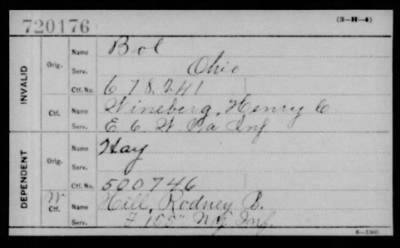 720176
(3-H-4)
INVALID
Orig.
Name
Bol
Serv.
Ohio
Ctf. No.
678241
Ctf.
Name
Wineberg, Henry C
Serv.
E 6 W Va Inf
DEPENDENT
Orig.
Name
Hay
Serv.
Ctf. No.
500746
W
Ctf.
Name
Hill, Rodney B.
Serv.
F 155" NY Inf.